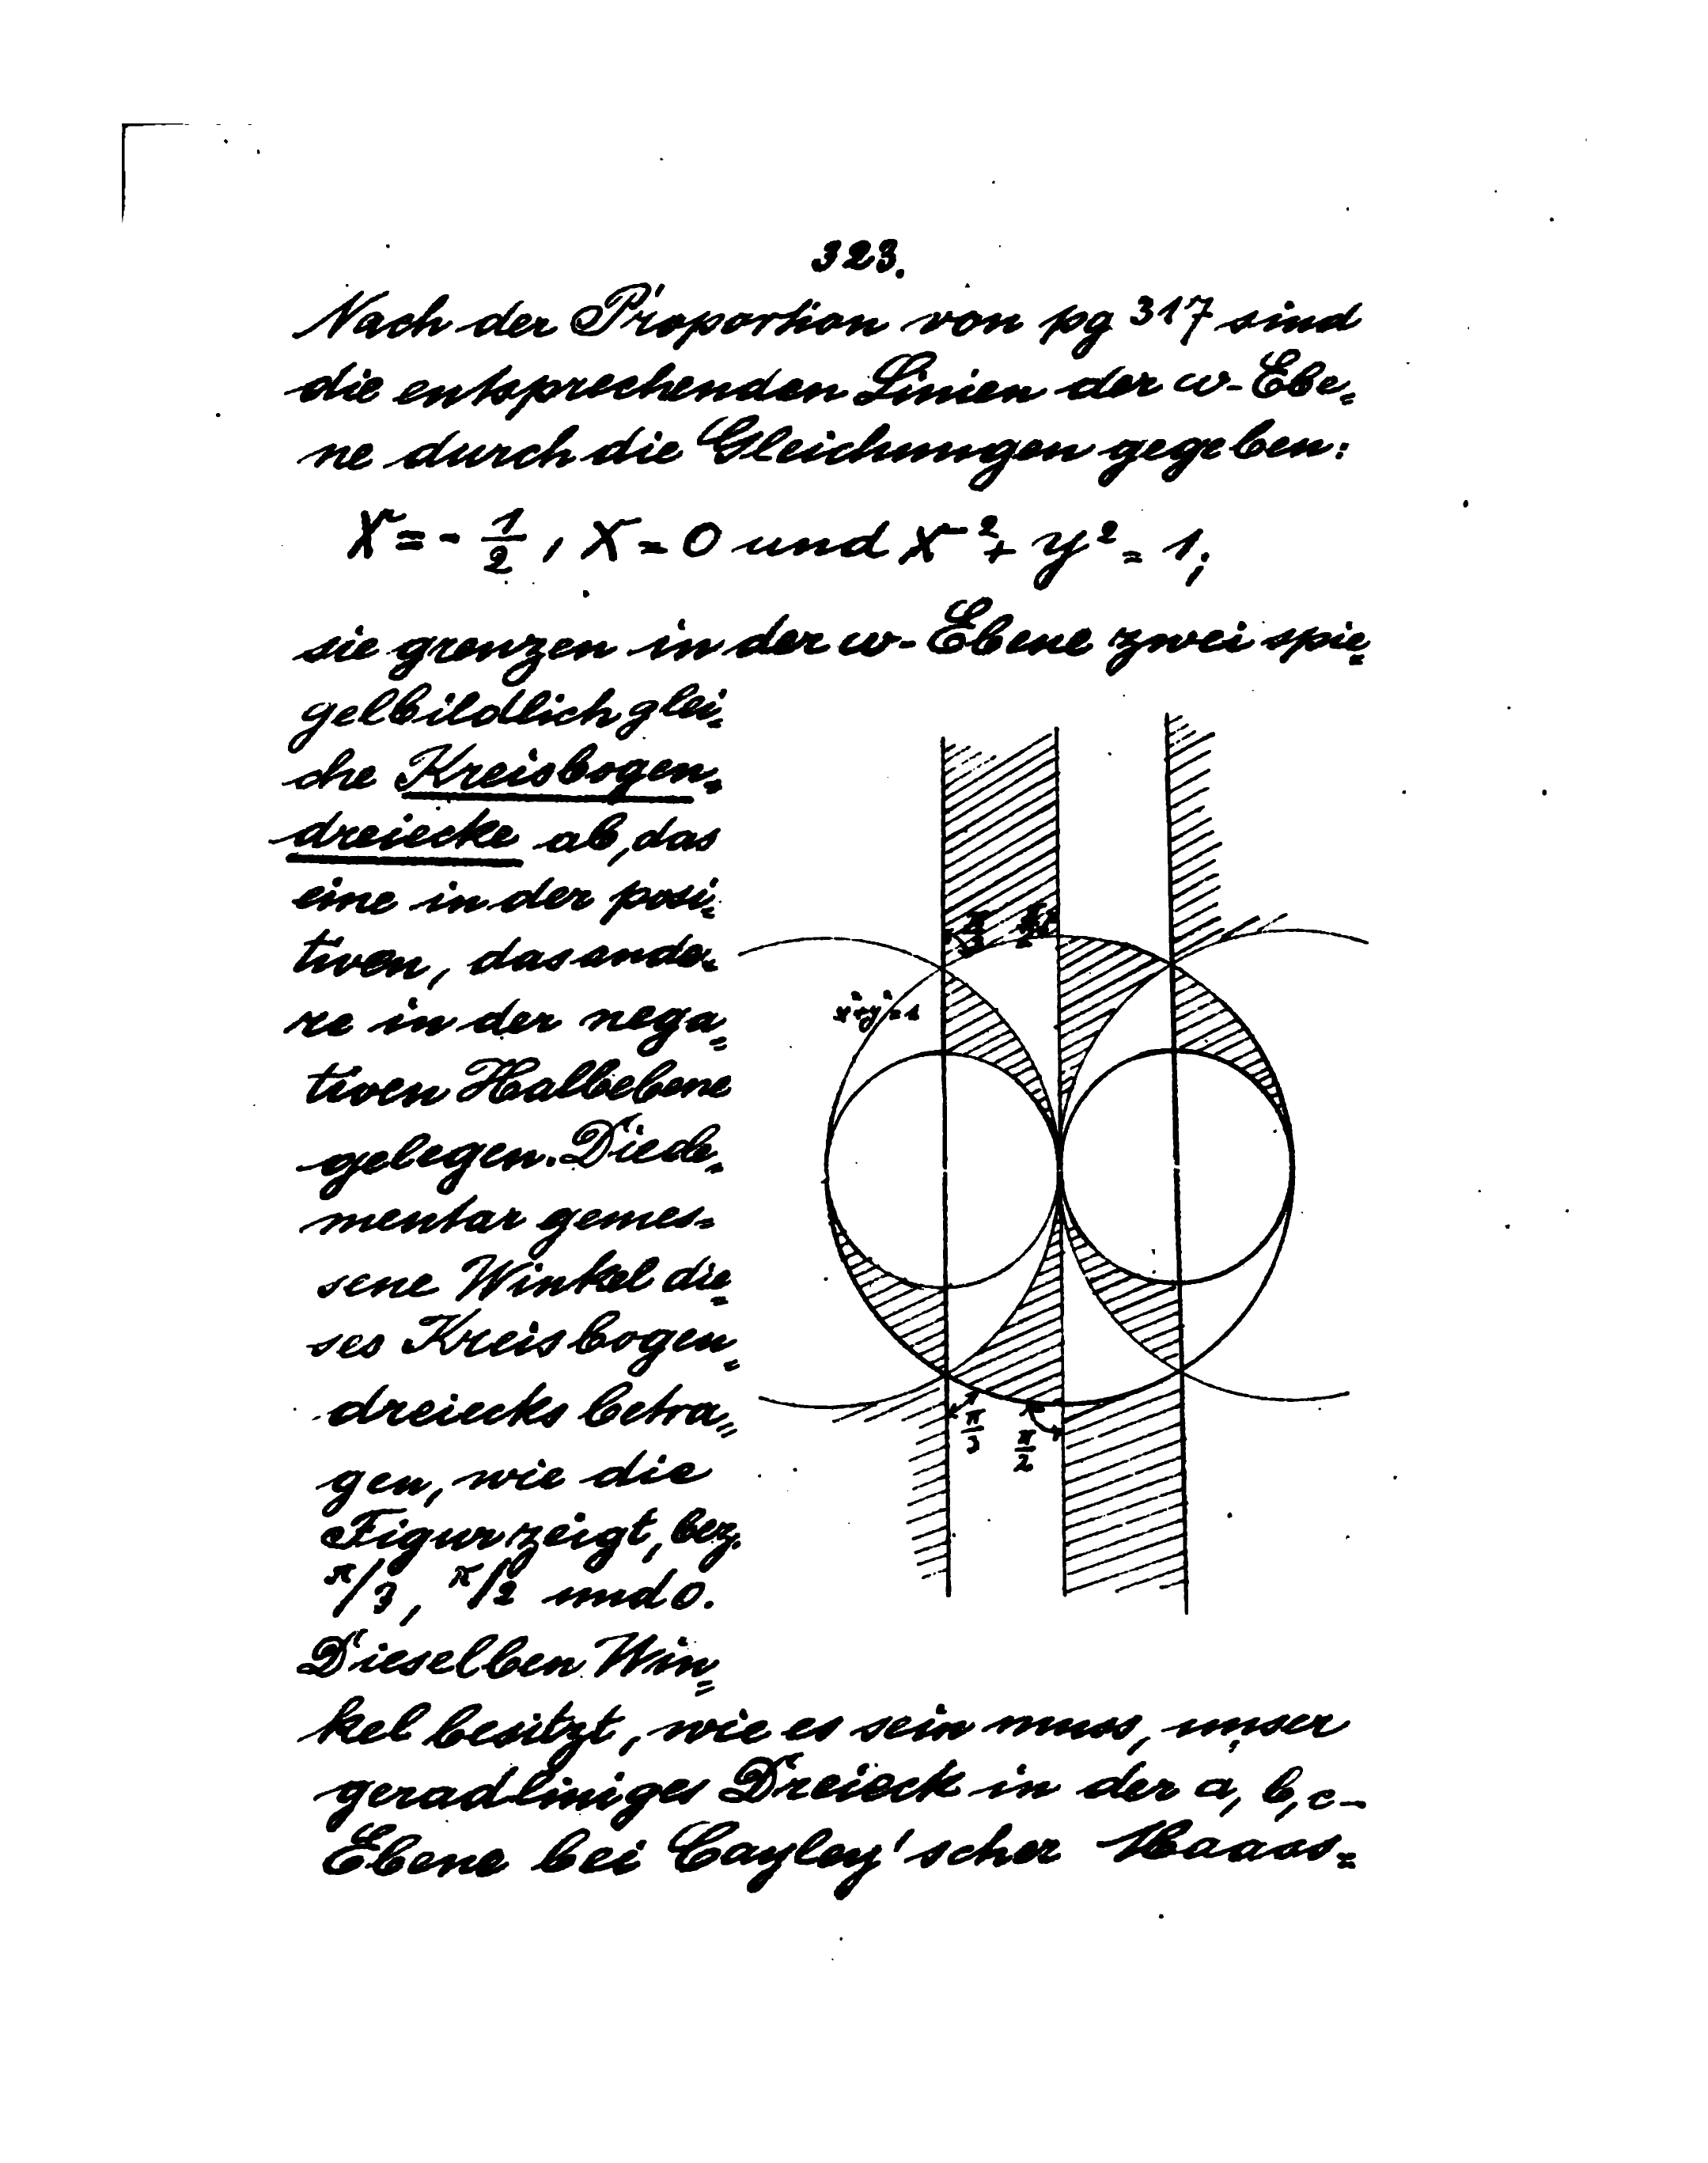 323.
Nach der Proportion von pg 317 sind
die entsprechenden Linien der w-Ebe=
ne durch die Gleichungen gegeben:
X = - 1/2, X = 0 und X² + y² = 1;
sie grenzen in der w-Ebene zwei spie=
gelbildlich glei=
che Kreisbogen=
dreiecke ab, das
eine in der posi=
tiven, das ande=
re in der nega=
tiven Halbebene
gelegen. Die ele=
mentar gemes=
sene Winkel die=
ses Kreisbogen=
dreiecks betra=
gen, wie die
Figur zeigt, bez.
π/3, π/2 und 0.
Dieselben Win=
kel besitzt, wie es sein muss, unser
geradliniges Dreieck in der a, b, c-
Ebene bei Cayley'scher Maass=
π/3
π/2
x²+y²=1
π/3
π/2